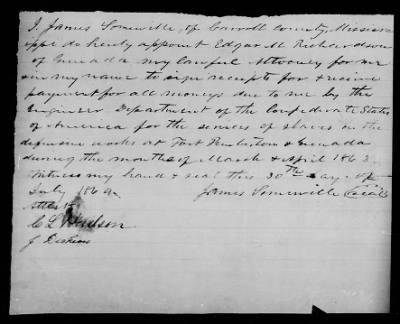 I, James Somerville, of Carroll County, Mississ
ippi do hereby appoint Edgar M Richardson
of Grenada my lawful Attorney for me
in my name to sign receipts for & receive
payment for all moneys due to me by the
Engineer Department of the Confederate States
of America for the services of slaves on the
defensive works at Fort Pemberton & Grenada
during the months of March & April 1863.
Witness my hand & seal this 30th day of
July 1864.
James Somerville (Seal)
Attest
C L Hudson
J